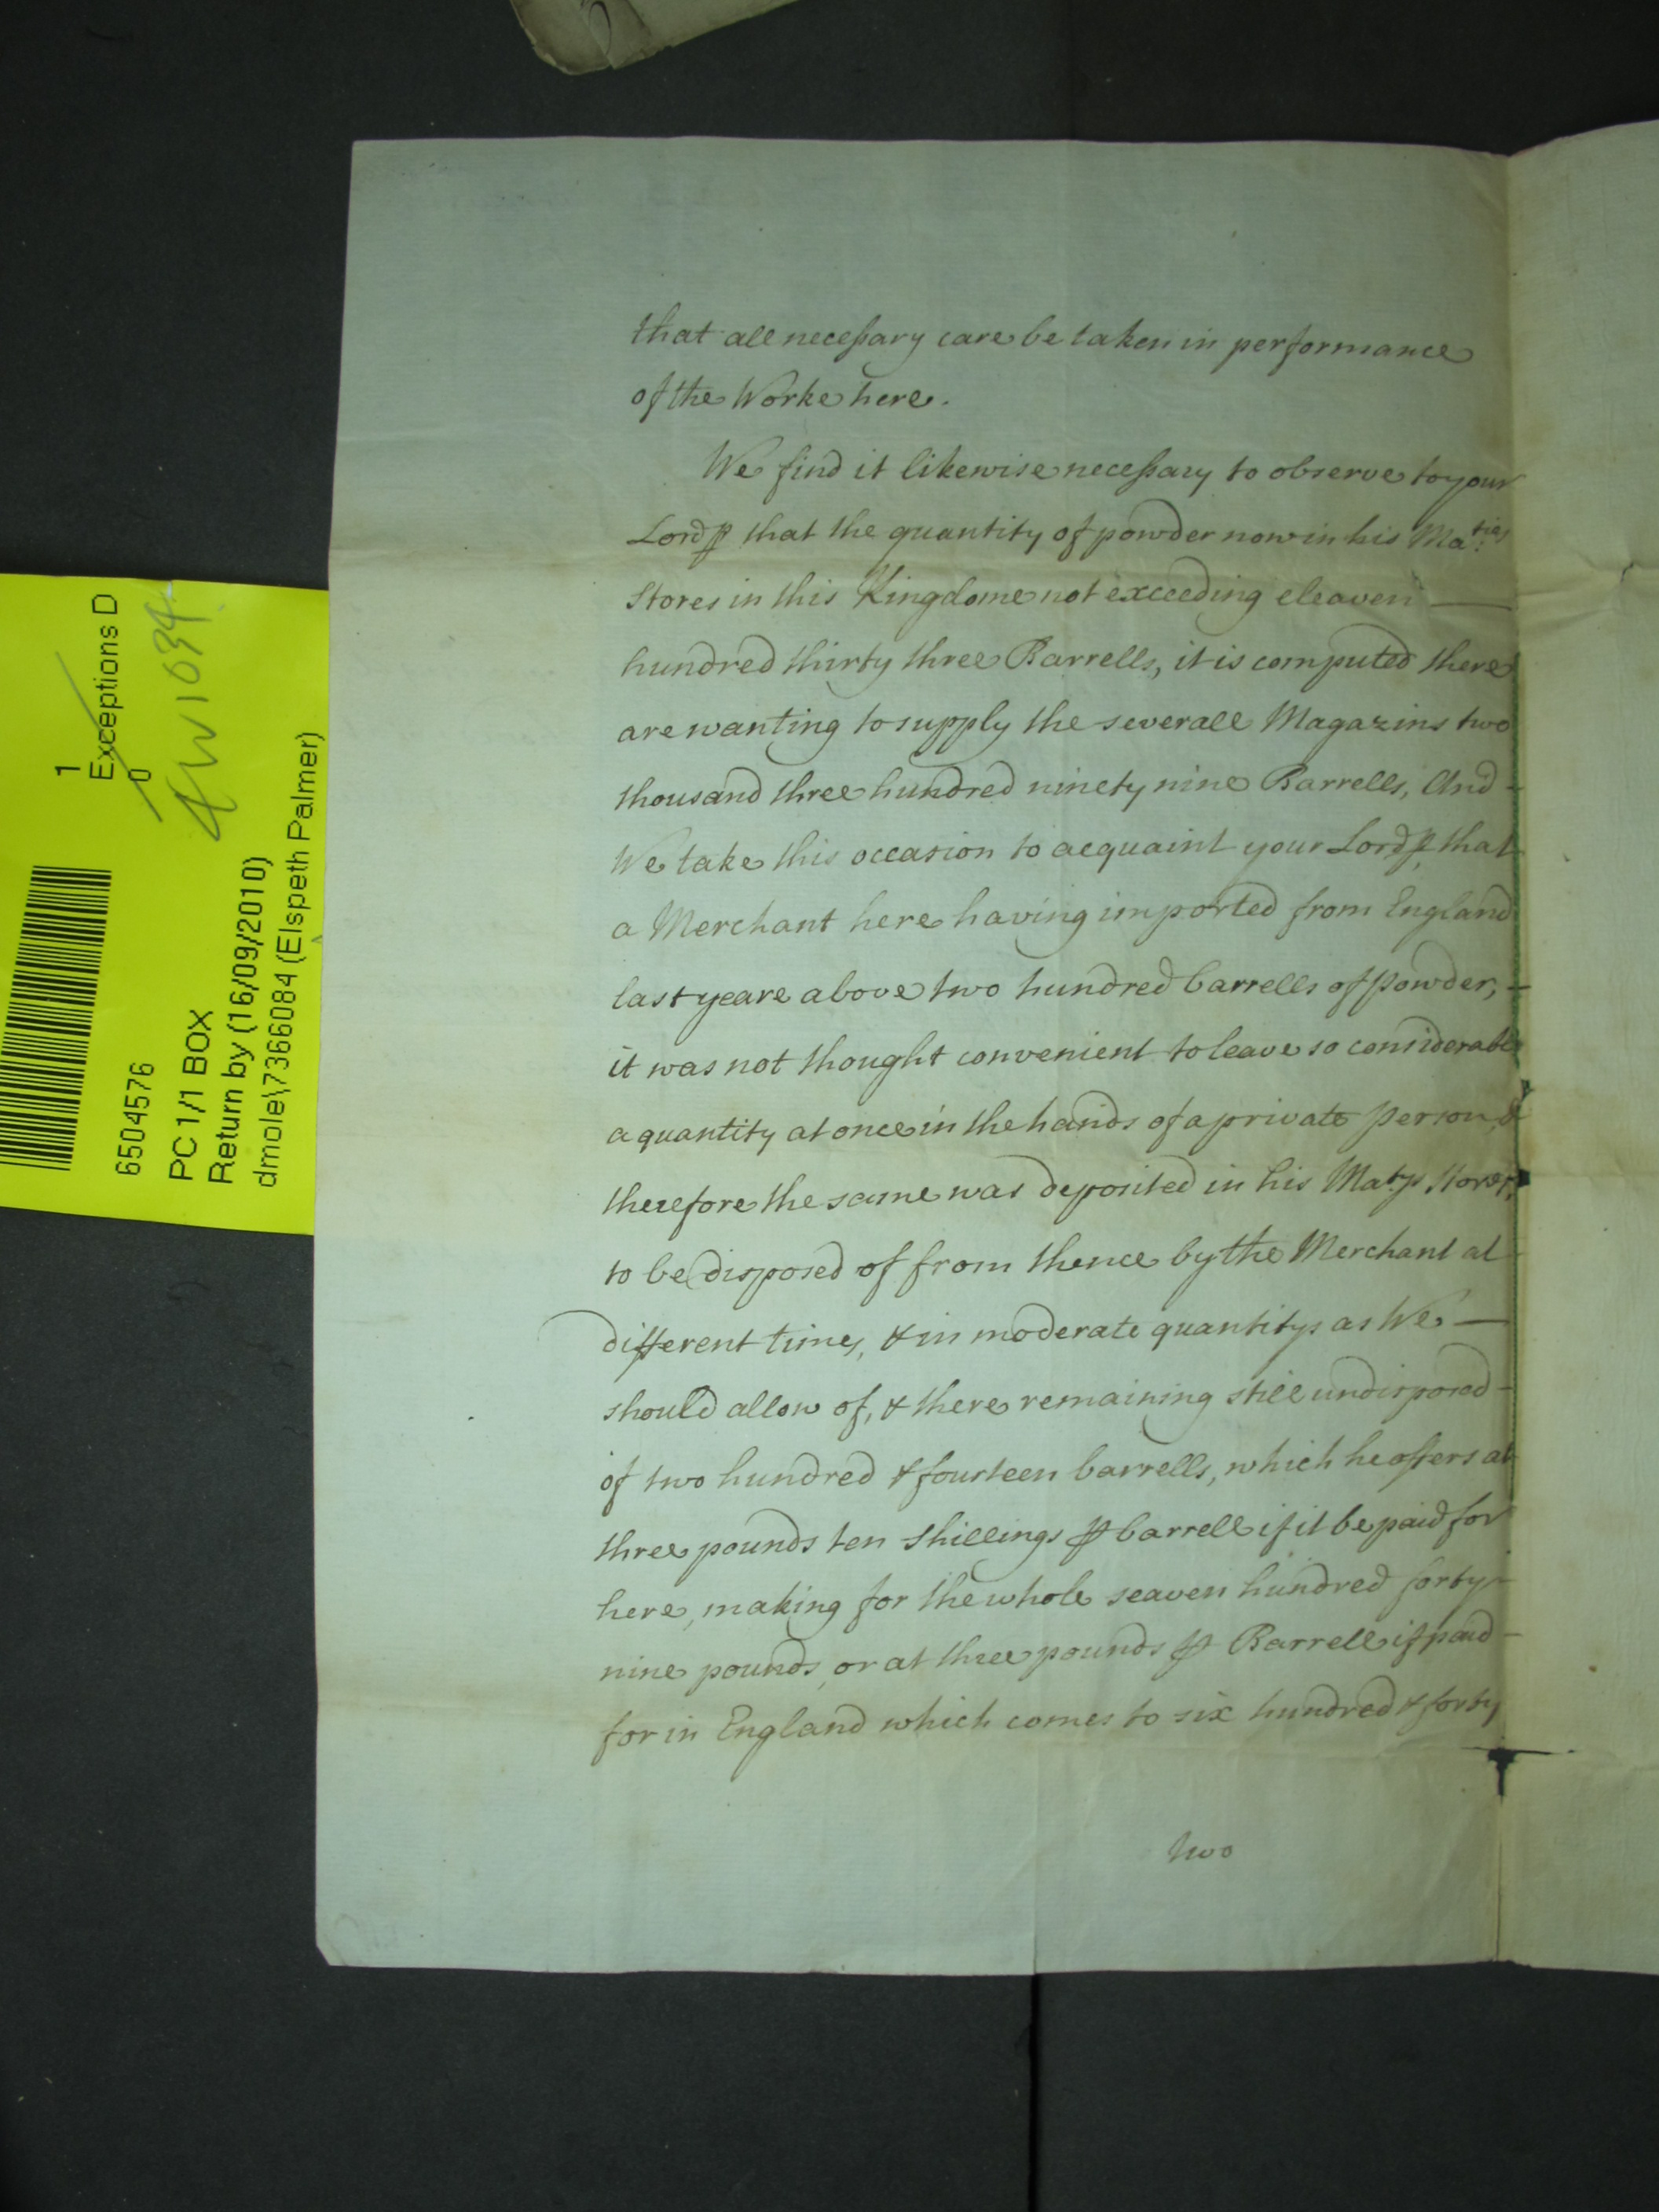 that all necessary care be taken in performance
of the Worke here.
We find it likewise necessary to observe to your
Lordpp that the quantity of powder now in his Ma:ties
Stores in this Kingdome not exceeding eleaven —
hundred thirty three Barrells, it is computed there
are wanting to supply the severall Magazins two
thousand three hundred ninety nine Barrells, And -
We take this occasion to acquaint your Lordpp that
a Merchant here having imported from England
last yeare above two hundred barrells of powder, -
it was not thought convenient to leave so considerable
a quantity at once in the hands of a private person, &
therefore the same was deposited in his Matys Stores,
to be disposed of from thence by the Merchant at
different times, & in moderate quantitys as We —
should allow of, & there remaining still undisposed -
of two hundred & fourteen barrells, which he offers at
three pounds ten shillings p barrell if it be paid for
here, making for the whole seaven hundred forty -
nine pounds, or at three pounds p Barrell if paid -
for in England which comes to six hundred & forty
two
1
Exceptions D
0
6504576
PC 1/1 BOX
Return by (16/09/2010)
dmole\7366084 (Elspeth Palmer)